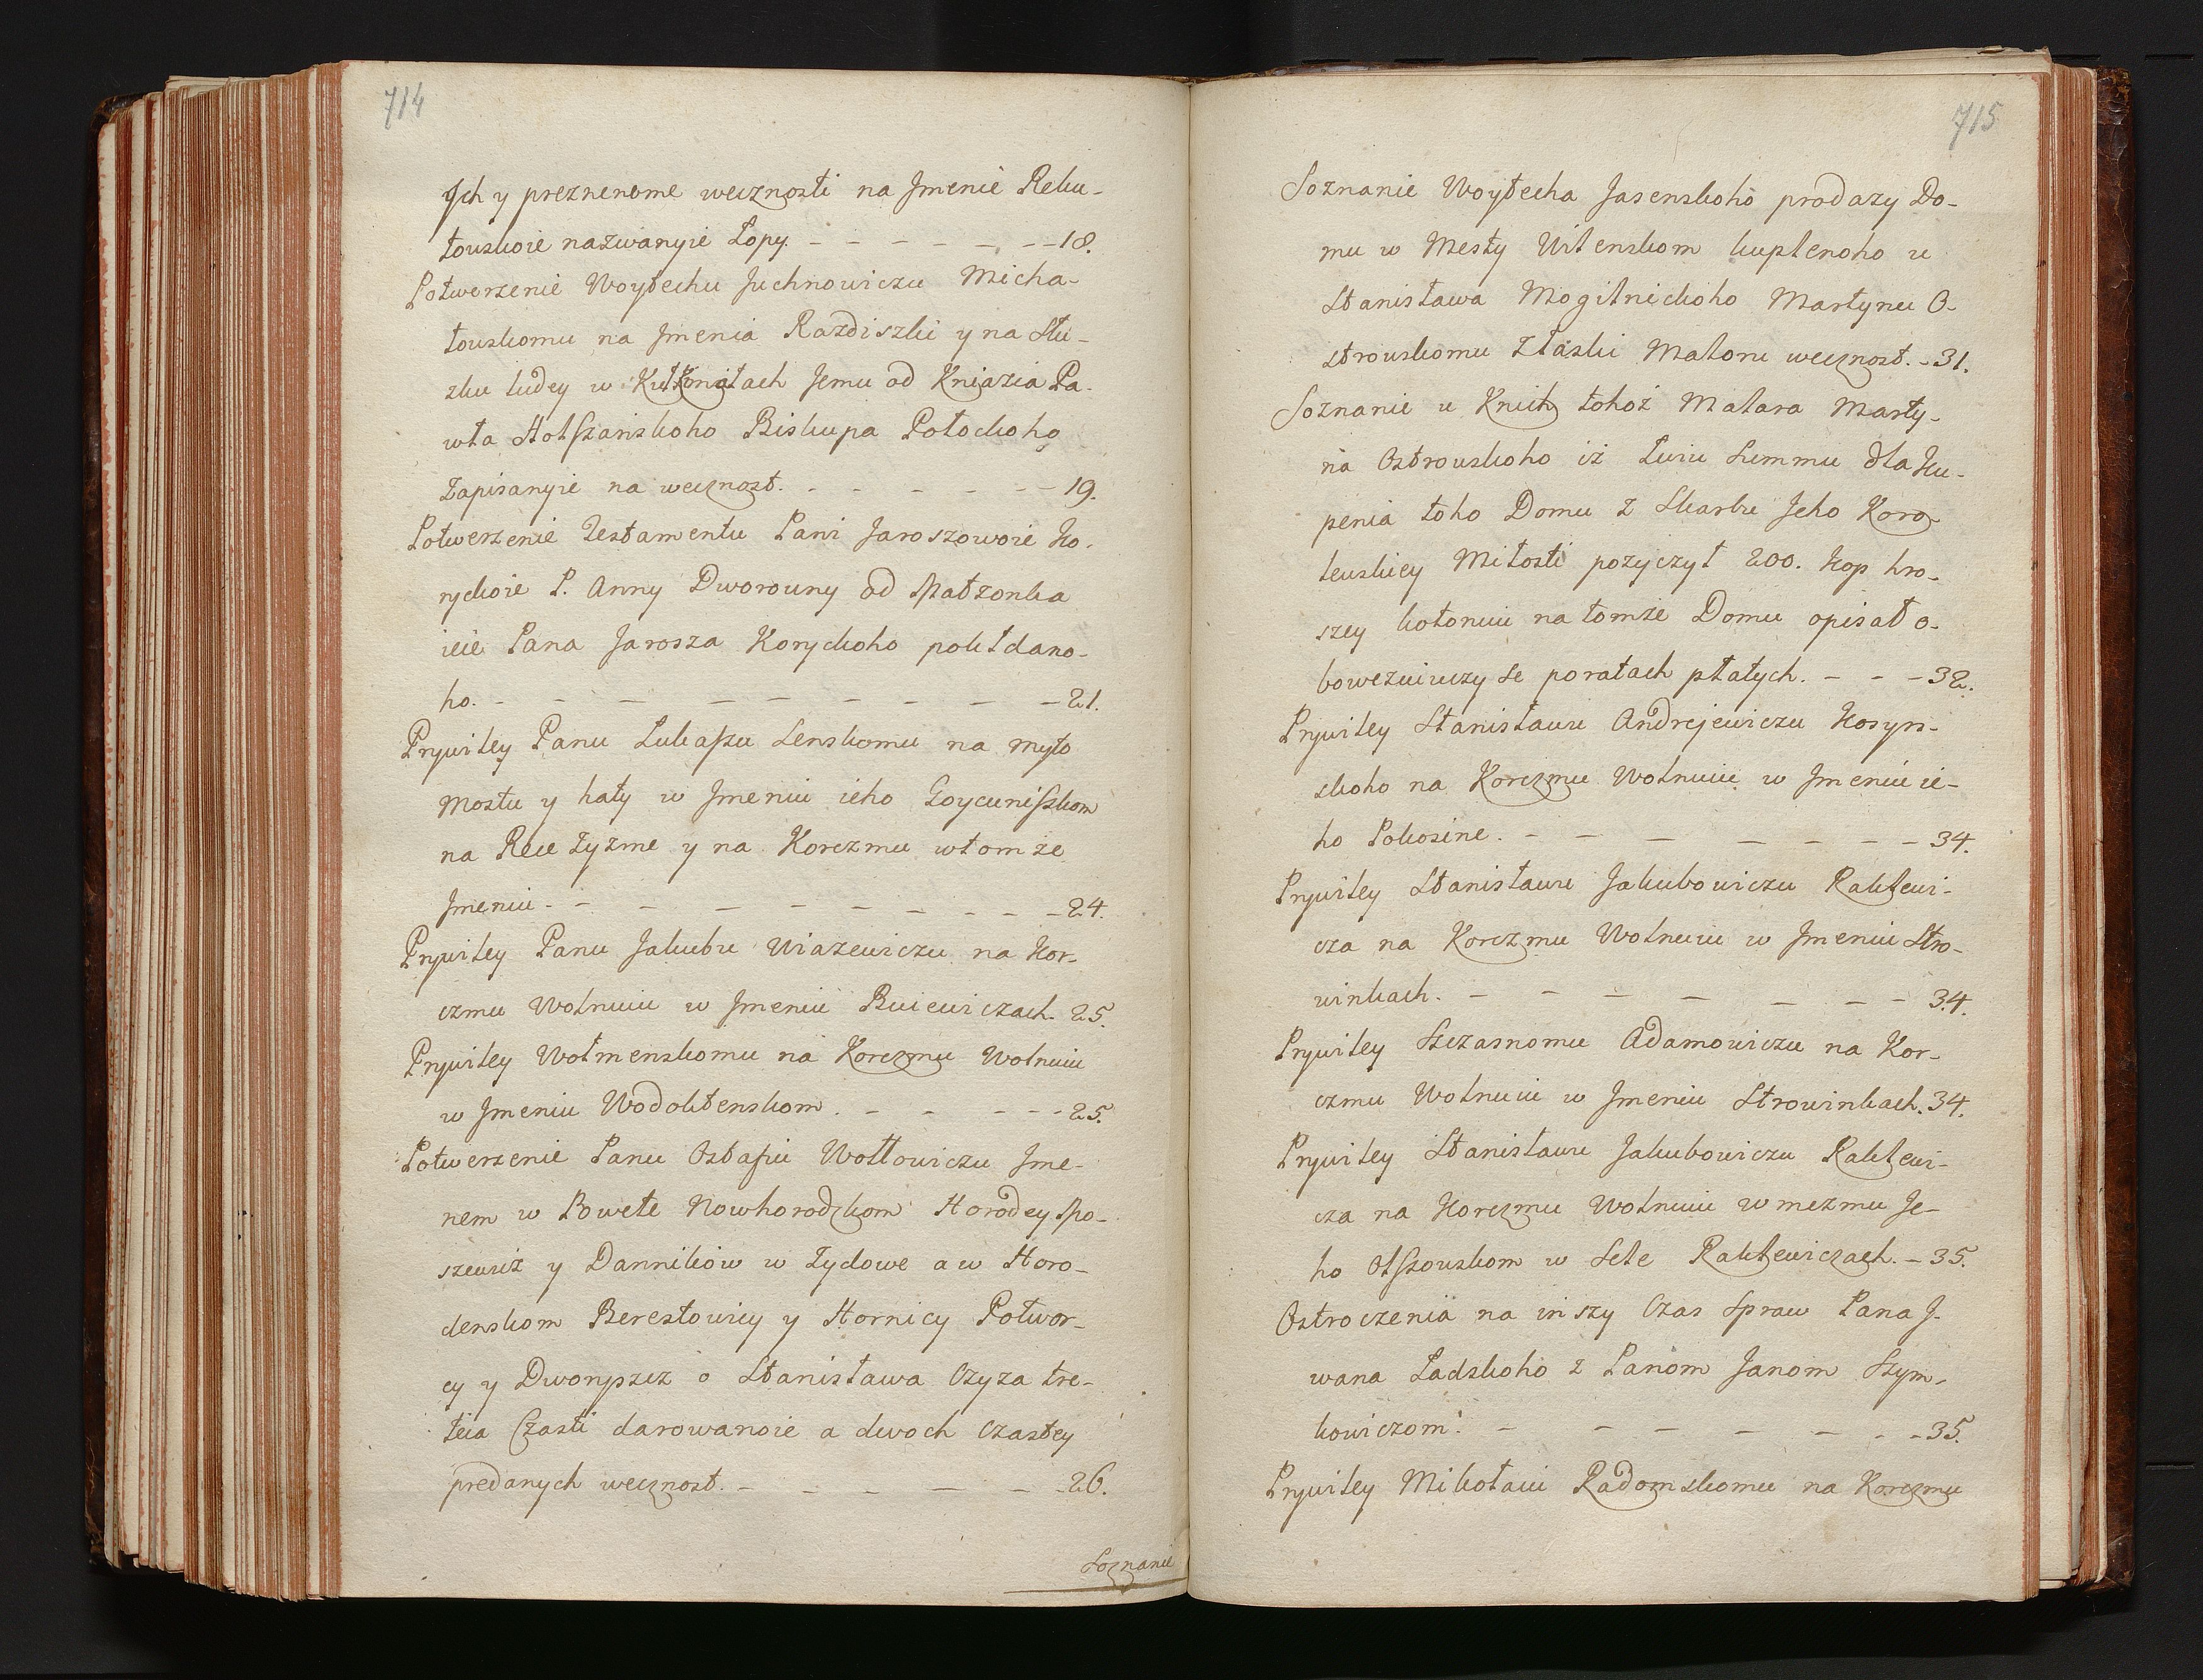 714
Jch y preznenome wecznosti na Jmenie Reku-
touskoie nazwanyie Łopy. - - - - - - - 18.
Potwerzenie Woytechu Juchnowiczu Micha-
łouskomu na Jmenia Razdiszki y na Słu-
zku ludey w Jemu od Kniazia Pa-
wła Holszanskoho Biskupa Połockoho
Zapisanyie na wecznost. - - - - - - 19.
Potwerzenie Testamentu Pani Jaroszowoie Ko-
ryckoie P. Anny Dworouny od Małzonka
ieie Pana Jarosza Koryckoho pokłdano-
ho. - - - - - - - - - 21.
Prywiley Panu Lukaszu Lenskomu na myto
Mostu y haty w Jmeniu ieho Goyceniszkom
na Rece Zyzme y na Korczmu wtomze
Jmeniu - - - - - - - - - - 24.
Prywiley Panu Jakubu Wiazewiczu na Kor-
czmu Wolnuiu w Jmeniu Buiewiczach. 25.
Prywiley Wolmenskomu na Korczmu Wolnuiu
w Jmeniu Wodoktenskom. - - - - - 25.
Potwerzenie Panu Ostafiu Wołłowiczu Jme-
nem w Powete Nowhorodzkom Horodey Mo-
szewiz y Dannikow w Zydowe a w Horo-
denskom Berestowicy y Hornicy Połwor-
cy y Dworyszcz o Stanisława Czyza tre-
teia Czasti darowanoie a dwoch czastey
predanych wecznost. - - - - - - 26.
Soznanie
715
Soznanie Woytecha Jasenskoho prodazy Do-
mu w Mesty Wilenskom kuplenoho u
Stanisława Mogilnickoho Martynu O-
strouskomu Złaski Malaru wecznost. - 31.
Soznanie u Knich tohoż Malara Marty-
na Ostrouskoho iż Summu dla Ku-
penia toho Domu z Skarbu Jeho Koro-
leuskiey Miłosti pozyczył 200. Kop hro-
szey kotoruiu na tomże Domu opisał o-
bowezuiuczy se poratach płatych. - - - 32.
Prywiley Stanisławu Andrejewiczu Kosyn-
skoho na Korczmu Wolnuiu w Jmeniu ie-
ho Pokosine. - - - - - - - 34.
Prywiley Stanisławu Jakubowiczu Raktewi-
cza na Korczmu Wolnuiu w Jmeniu Stro-
winkach. - - - - - - - 34.
Prywiley Szczasnomu Adamowiczu na Kor-
czmu Wolnuiu w Jmeniu Strowinkach. 34.
Prywiley Stanisławu Jakubowiczu Raktewi-
cza na Korczmu Wolnuiu w mezmu Je-
ho Olszouskom w Sele Raktewiczach. - 35.
Ostroczenia na inszy Czas Spraw Pana J-
wana Ladskoho z Panom Janom Szym-
kowiczom. - - - - - - - 35.
Prywiley Mikołaiu Radomskomu na Korczmu